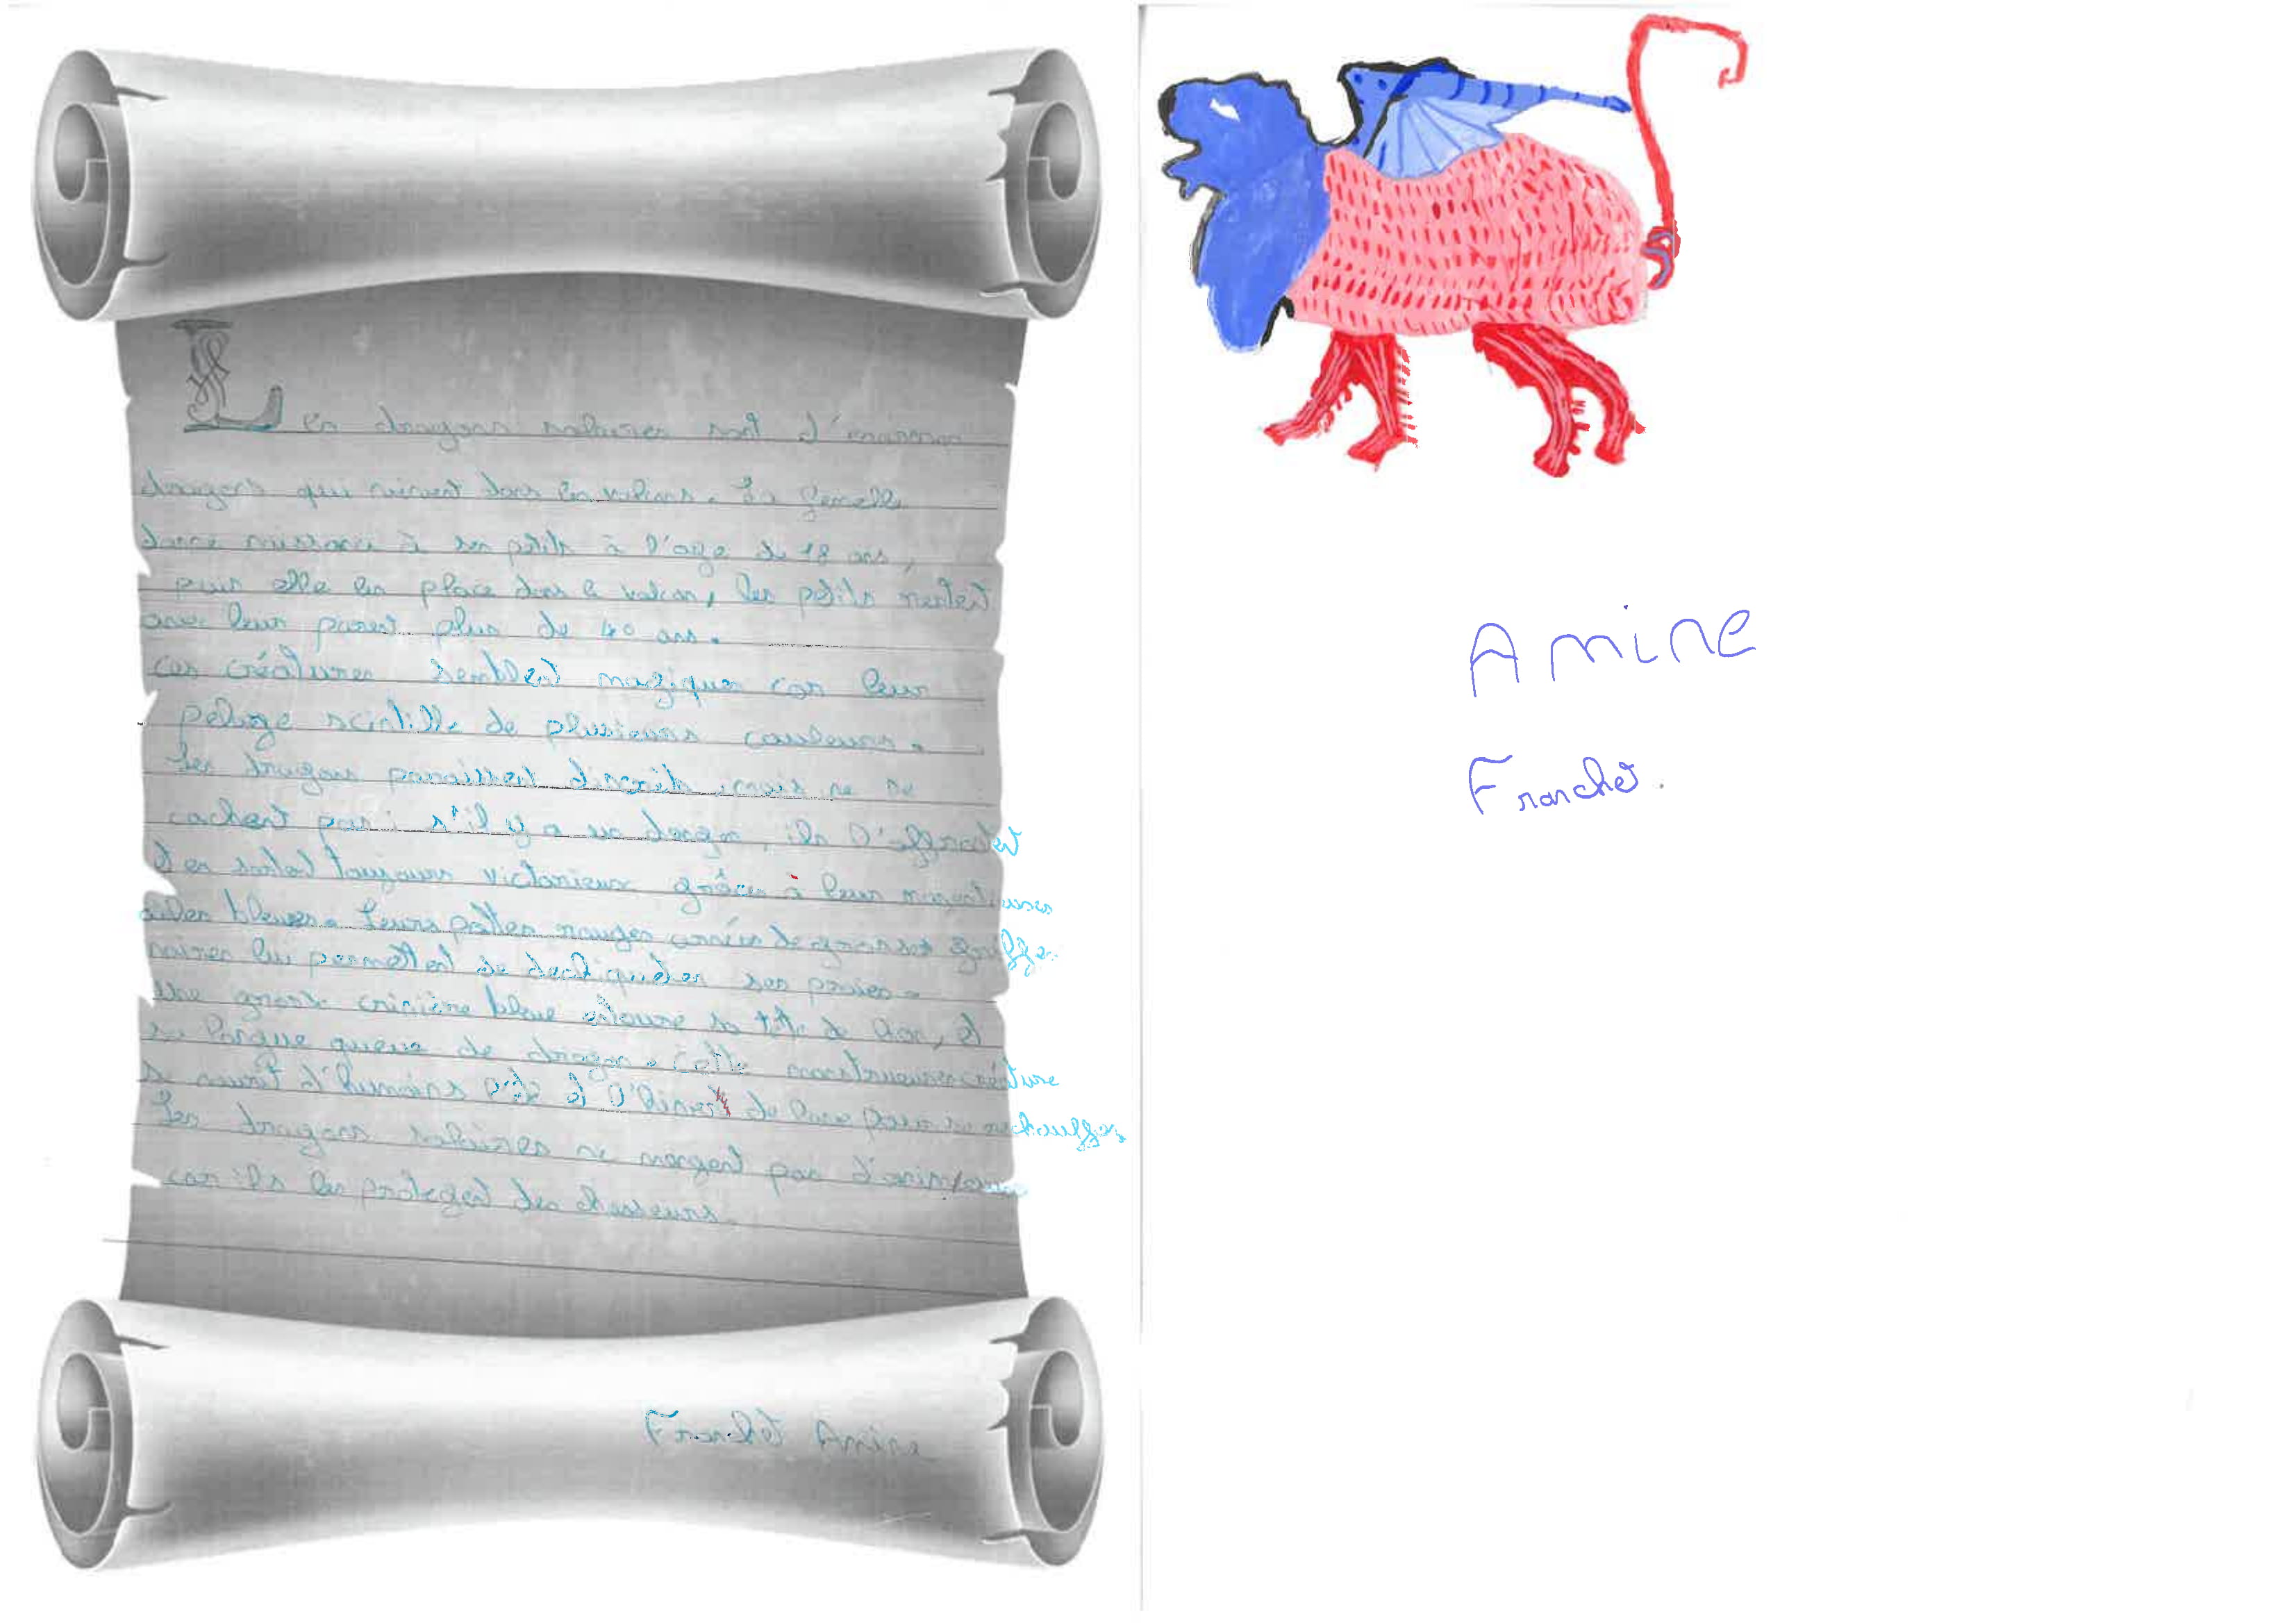 Les dragons solaires sont d'énormes
dragons qui vivent dans les volcans. La femelle
donne naissance à ses petits à l'age de 18 ans,
puis elle les place dans le volcan, les petits restent
avec leur parent plus de 40 ans.
ces créatures semblent magiques car leur
pelage scintille de plusieurs couleurs.
Les dragons paraissent discrets, mais ne se
cachent pas ; s'il y a un danger, ils l'affrontent
et en sortent toujours victorieux grâce à leur
ailes bleues. Leurs pattes rouges armées de grosses griffes
noires lui permettent de ses proies.
Une grande crinière bleue entoure sa tête de lion, et
sa longue queue de dragon. Cette monstrueuse créature
se nourit d'humains l'été et l'hiver de lave pour se rechauffer.
Les dragons solaires ne mangent pas d'animaux
car ils les protegent des chasseurs.
Franchet Amine
Amine
Franchet.